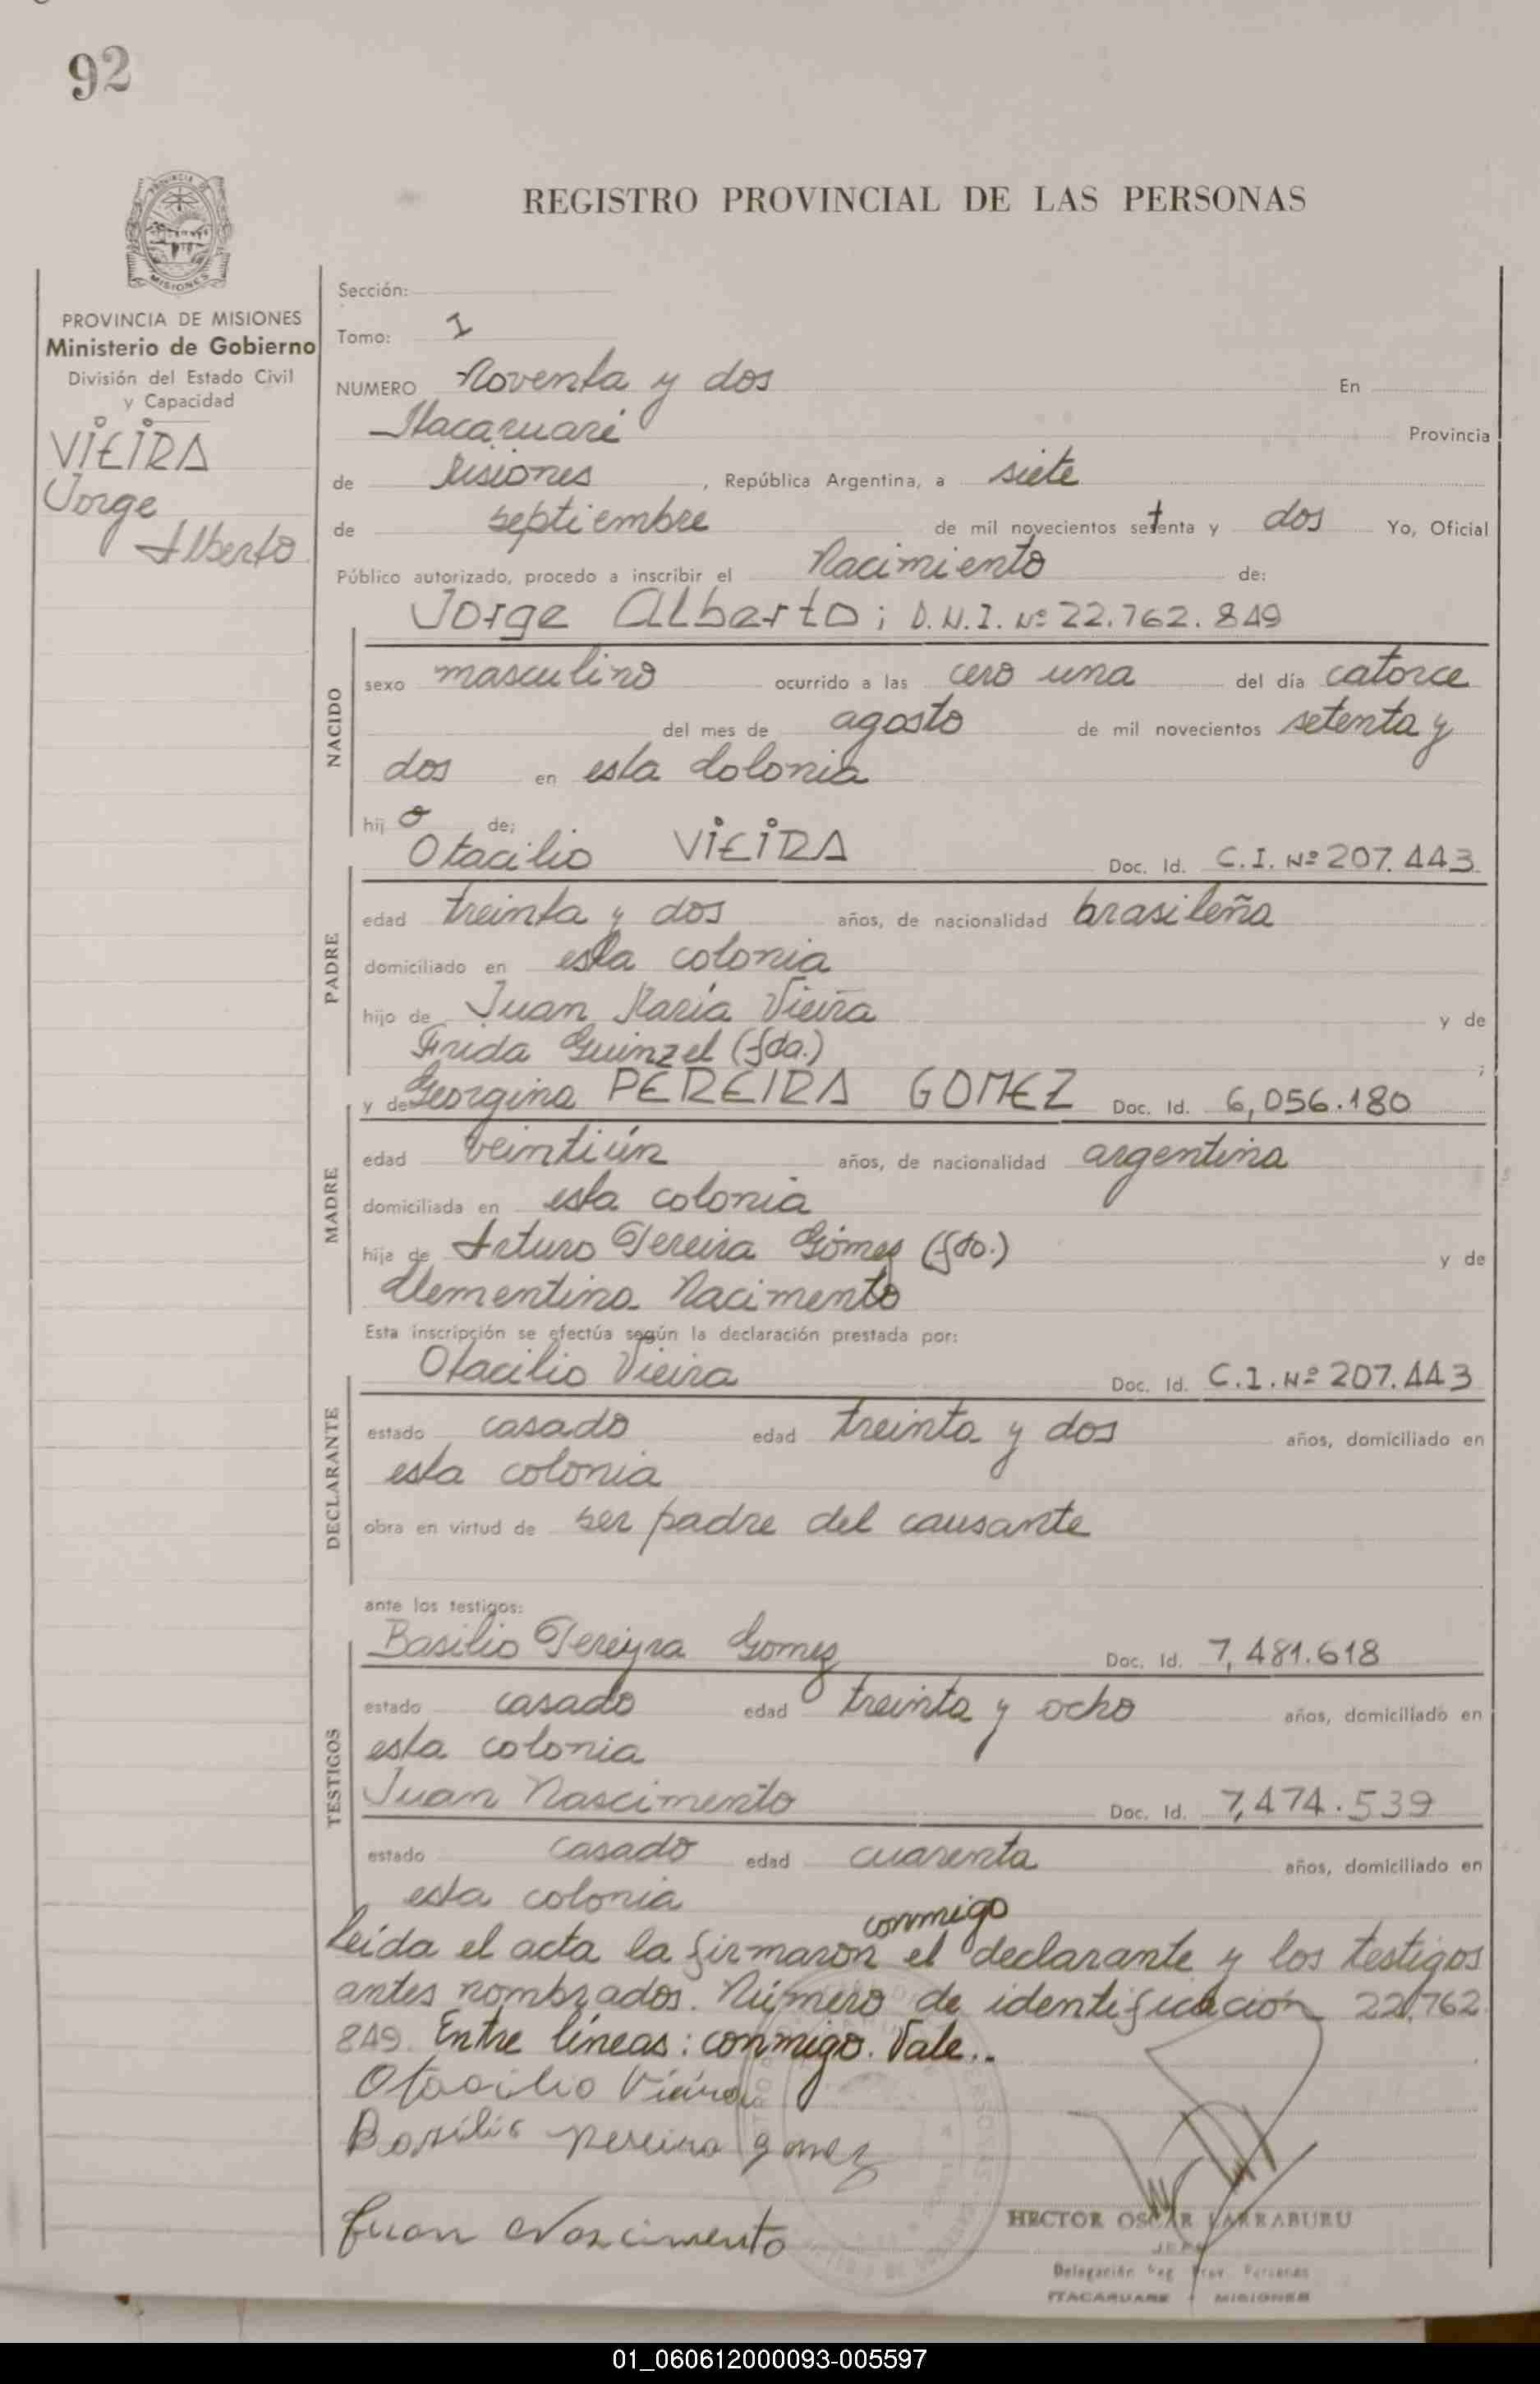 92
REGISTRO PROVINCIAL DE LAS PERSONAS
MISIONES
PROVINCIA DE MISIONES
Ministerio de Gobierno
División del Estado Civil
y Capacidad
VIEIRA
Jorge
Alberto
Sección:
Tomo: I
NUMERO Noventa y dos En
Itacaruaré Provincia
de Misiones, República Argentina, a siete
de septiembre de mil novecientos setenta y dos Yo, Oficial
Público autorizado, procedo a inscribir el Nacimiento de:
Jorge Alberto; D.N.I. Nº 22.762.849
NACIDO
sexo masculino ocurrido a las cero una del día catorce
del mes de agosto de mil novecientos setenta y
dos en esta Colonia
hijo de:
Otacilio VIEIRA Doc. Id. C.I. Nº 207.443
PADRE
edad treinta y dos años, de nacionalidad brasileña
domiciliado en esta colonia
hijo de Juan María Vieira y de
Frida Guinzel (fda.) ;
y de Georgina PEREIRA GOMEZ Doc. Id. 6,056.180
MADRE
edad veintiún años, de nacionalidad argentina
domiciliada en esta colonia
hija de Arturo Pereira Gómez (fdo.) y de
Clementina Nacimento
Esta inscripción se efectúa según la declaración prestada por:
Otacilio Vieira Doc. Id. C.I. Nº 207.443
DECLARANTE
estado casado edad treinta y dos años, domiciliado en
esta colonia
obra en virtud de ser padre del causante
ante los testigos:
Basilio Pereyra Gomez Doc. Id. 7,481.618
TESTIGOS
estado casado edad treinta y ocho años, domiciliado en
esta colonia
Juan Nascimento Doc. Id. 7,474.539
estado casado edad cuarenta años, domiciliado en
esta colonia
conmigo
Leída el acta la firmaron el declarante y los testigos
antes nombrados. Número de identificación 22,762
849. Entre líneas: conmigo. Vale..
Otacilio Vieira
Basilio pereira gomez
Juan Nascimento
HECTOR OSCAR LARRABURU
JEFE
Delegación Reg. Prov. Personas
ITACARUARE MISIONES
01_060612000093-005597